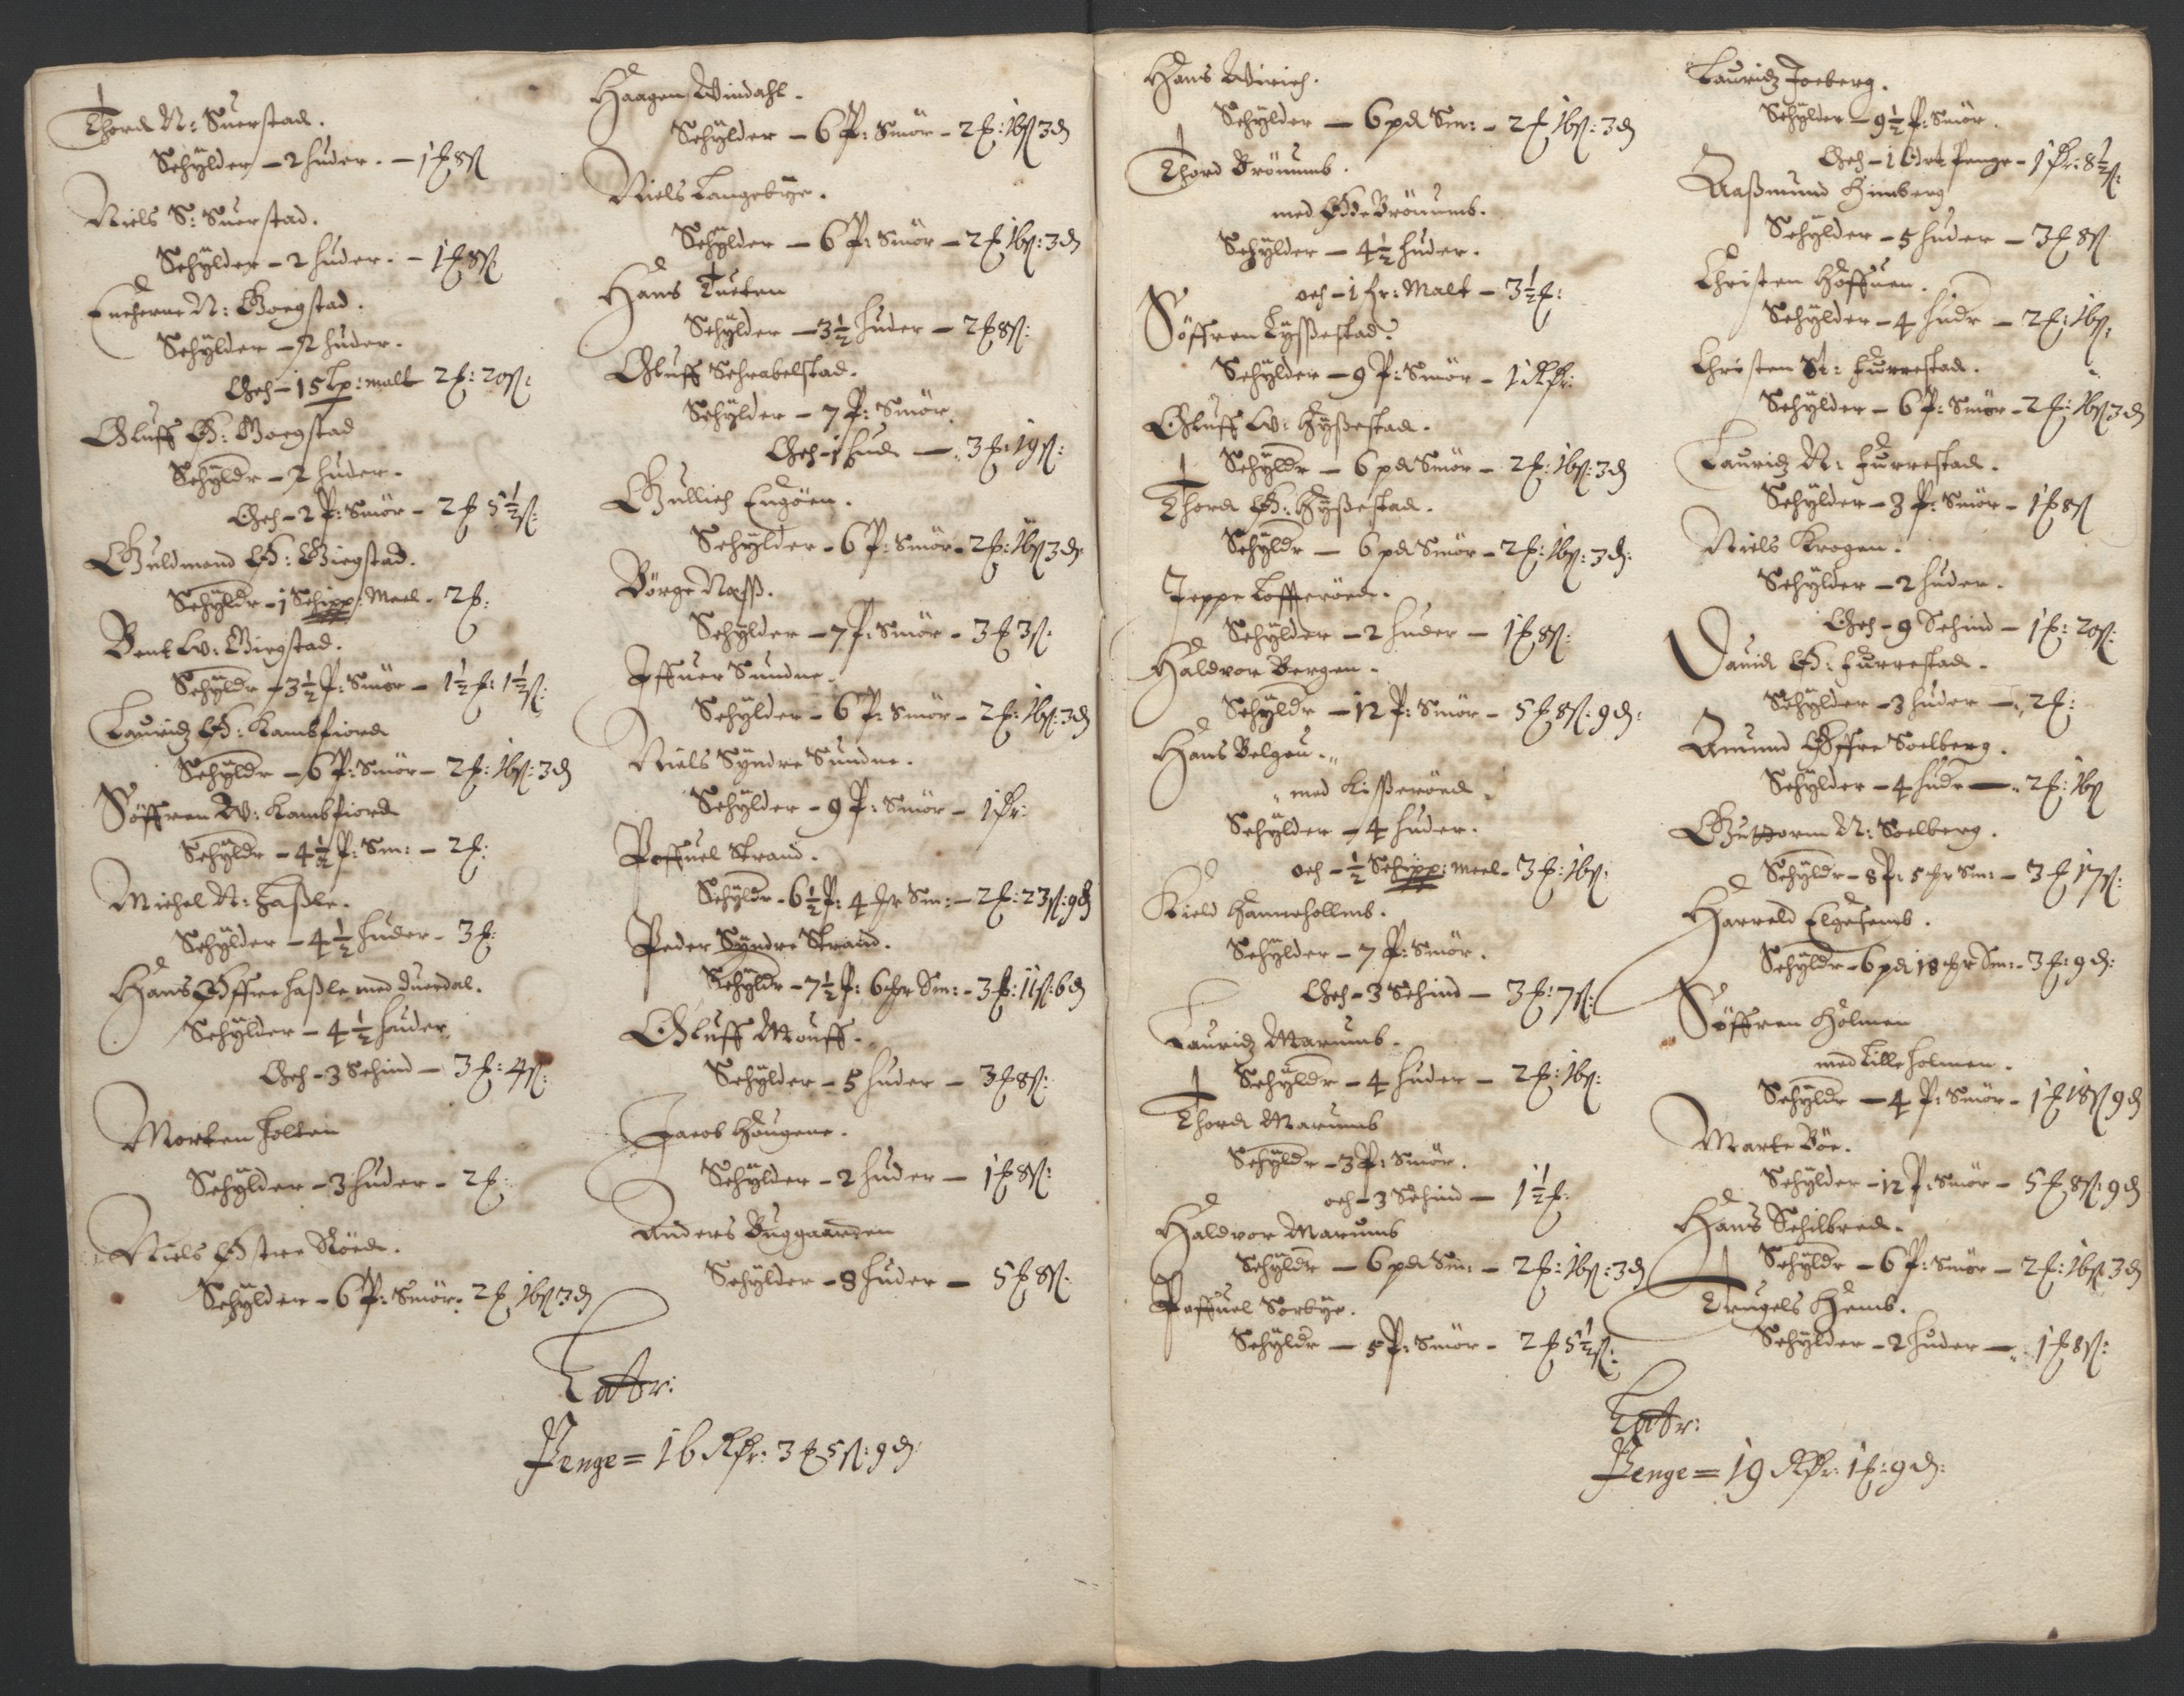 Thord N: Suerstad.
Schÿlder – 2 huder. – 1 ℔ 8 ß
Niels S: Suerstad.
Schÿlder – 2 huder. – 1 ℔ 8 ß
N: Gogstad.
Schÿlder – 2 huder.
Och – 15 Lp: malt 2 ℔: 20 ß:
Oluff Ø: Gogstad
Schÿldr – 2 huder.
Och – 2 P: Smör – 2 ℔ 5½ ß:
Guldmond Ø: Giegstad.
Schÿldr – 1 Schipp: Meel. 2 ℔:
Bent W: Giegstad.
Schÿldr – 3½ P: Smör – 1½ ℔: 1½ ß:
Lauridz Ø: Kambfiord
Schÿldr – 6 P: Smör – 2 ℔: 16 ß: 3 d
Söffren W: Kambfiord
Schÿldr – 4½ P: Sm: – 2 ℔:
Michel N: Haßle.
Schÿlder – 4½ huder – 3 ℔:
Hans Öffre Haßle med Duerdal.
Schÿlder – 4½ huder
Och – 3 Schind – 3 ℔: 4 ß:
Morten Holten
Schÿlder – 3 huder – 2 ℔:
Niels Østre Röed.
Schÿlder – 6 P: Smör: 2 ℔ 16 ß 3 d
Haagen Windahl.
Schÿlder – 6 P: Smör – 2 ℔: 16 ß 3 d
Niels Langebÿe.
Schÿlder – 6 P: Smör – 2 ℔ 16 ß: 3 d
Hans Tueten
Schÿlder – 3½ huder – 2 ℔ 8 ß:
Oluff Schrabelstad.
Schÿlder – 7 P: Smör
Och – 1 hud – 3 ℔: 19 ß:
Gullich Engöen.
Schÿlder – 6 P: Smör – 2 ℔: 16 ß 3 d:
Börge Næss.
Schÿlder – 7 P: Smör – 3 ℔ 3 ß:
Iffuer Sundne.
Schÿlder – 6 P: Smör – 2 ℔: 16 ß: 3 d
Niels Sÿndre Sundne.
Schÿlder – 9 P: Smör – 1 Rr:
Poffuel Strand.
Schÿldr – 6½ P: 4 Sm: – 2 ℔: 23 ß: 9 d
Peder Sÿndre Strand.
Schÿldr – 7½ P: 6 Sm: – 3 ℔: 11 ß: 6 d
Oluff Mouff.
Schÿlder – 5 huder – 3 ℔ 8 ß:
Jacob Haugene.
Schÿlder – 2 huder – 1 ℔ 8 ß:
Anders Buggaarden
Schÿlder – 8 huder – 5 ℔ 8 ß:
Lattr:
Penge = 16 Rdr: 3 ℔ 5 ß: 9 d:
Hans Wirich.
Schÿlder – 6 pd Sm: – 2 ℔ 16 ß: 3 d
Thord Brönumb.
med Øde Brönumb.
Schÿlder – 4½ huder.
och – 1 fr: Malt – 3½ ℔:
Söffren Hÿssestad.
Schÿlder – 9 P: Smör – 1 Rdr:
Oluff W: Hÿßestad.
Schÿldr – 6 pd Smör – 2 ℔: 16 ß: 3 d
Thord Ø: Hÿßestad.
Schÿldr – 6 pd Smör – 2 ℔: 16 ß: 3 d:
Jeppe Lofferöed.
Schÿlder – 2 huder – 1 ℔ 8 ß:
Haldvor Bergen.
Schÿldr – 12 P: Smör – 5 ℔ 8 ß: 9 d:
Hans Belgen.
med Kisseröed
Schÿlder – 4 huder.
och – ½ Schipp: meel – 3 ℔: 16 ß:
Kield Hannehollmb.
Schÿlder – 7 P: Smör.
Och – 3 Schind – 3 ℔: 7 ß:
Lauridz Marumb.
Schÿldr – 4 huder – 2 ℔: 16 ß:
Thord Marumb
Schÿldr – 3 P: Smör.
och – 3 Schind – 1½ ℔:
Haldvor Marumb
Schÿldr – 6 pd Sm: – 2 ℔: 16 ß: 3 d
Poffuel Sorbÿe.
Schÿldr – 5 P: Smör – 2 ℔ 5½ ß:
Lauridz Joeberg.
Schÿlder – 9½ P: Smör.
Och – 1 Ort Penge – 1 Rr: 8½ ß:
Aaßmund Himberg
Schÿlder – 5 huder – 3 ℔ 8 ß
Christen Hoffuen.
Schÿlder – 4 hudr – 2 ℔: 16 ß:
Christen St: Furrestad.
Schÿlder – 6 P: Smör – 2 ℔: 16 ß 3 d
Lauridz N: Furrestad.
Schÿlder – 3 P: Smör – 1 ℔ 8 ß
Niels Krogen.
Schÿlder – 2 huder.
Och – 9 Schind – 1 ℔: 20 ß:
Dauid Ø: Furrestad.
Schÿlder – 3 huder – 2 ℔:
Amund Øffre Soelberg.
Schÿlder – 4 hudr – 2 ℔: 16 ß
Guttorm N: Soelberg.
Schÿldr – 8 P: 5 Sm: – 3 ℔ 17 ß:
Harreld Elgesemb.
Schÿldr – 6 pd 18 Sm: – 3 ℔: 9 d:
Söffren Holmen
med Lille Holmen.
Schÿldr – 4 P: Smör – 1 ℔ 18 ß 9 d
Marte Böe.
Schÿlder – 12 P: Smör – 5 ℔ 8 ß: 9 d
Hans Schilbred.
Schÿldr – 6 P: Smör – 2 ℔: 16 ß 3 d
Trugels Hemb.
Schÿlder – 2 huder – 1 ℔ 8 ß:
Lattr:
Penge = 19 Rdr: 1 ℔: 9 d: